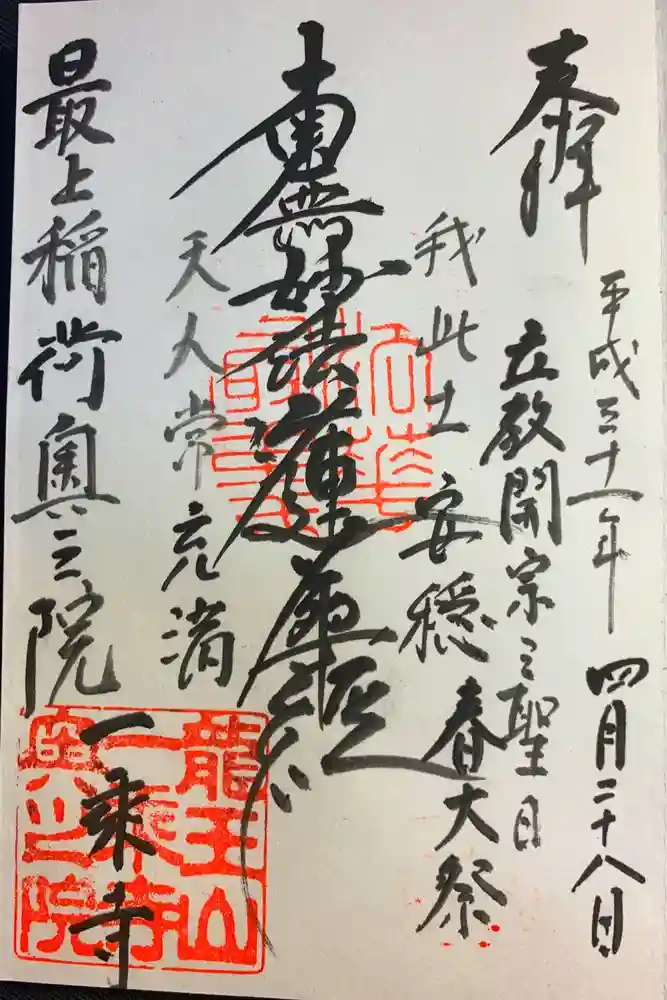 奉拝
平成三十一年 四月二十八日
立教開宗之聖日
春大祭
我此土安穏
南無妙法蓮華経
天人常充満
最上稲荷奥之院
一乗寺
龍王山
一乗寺
奥之院